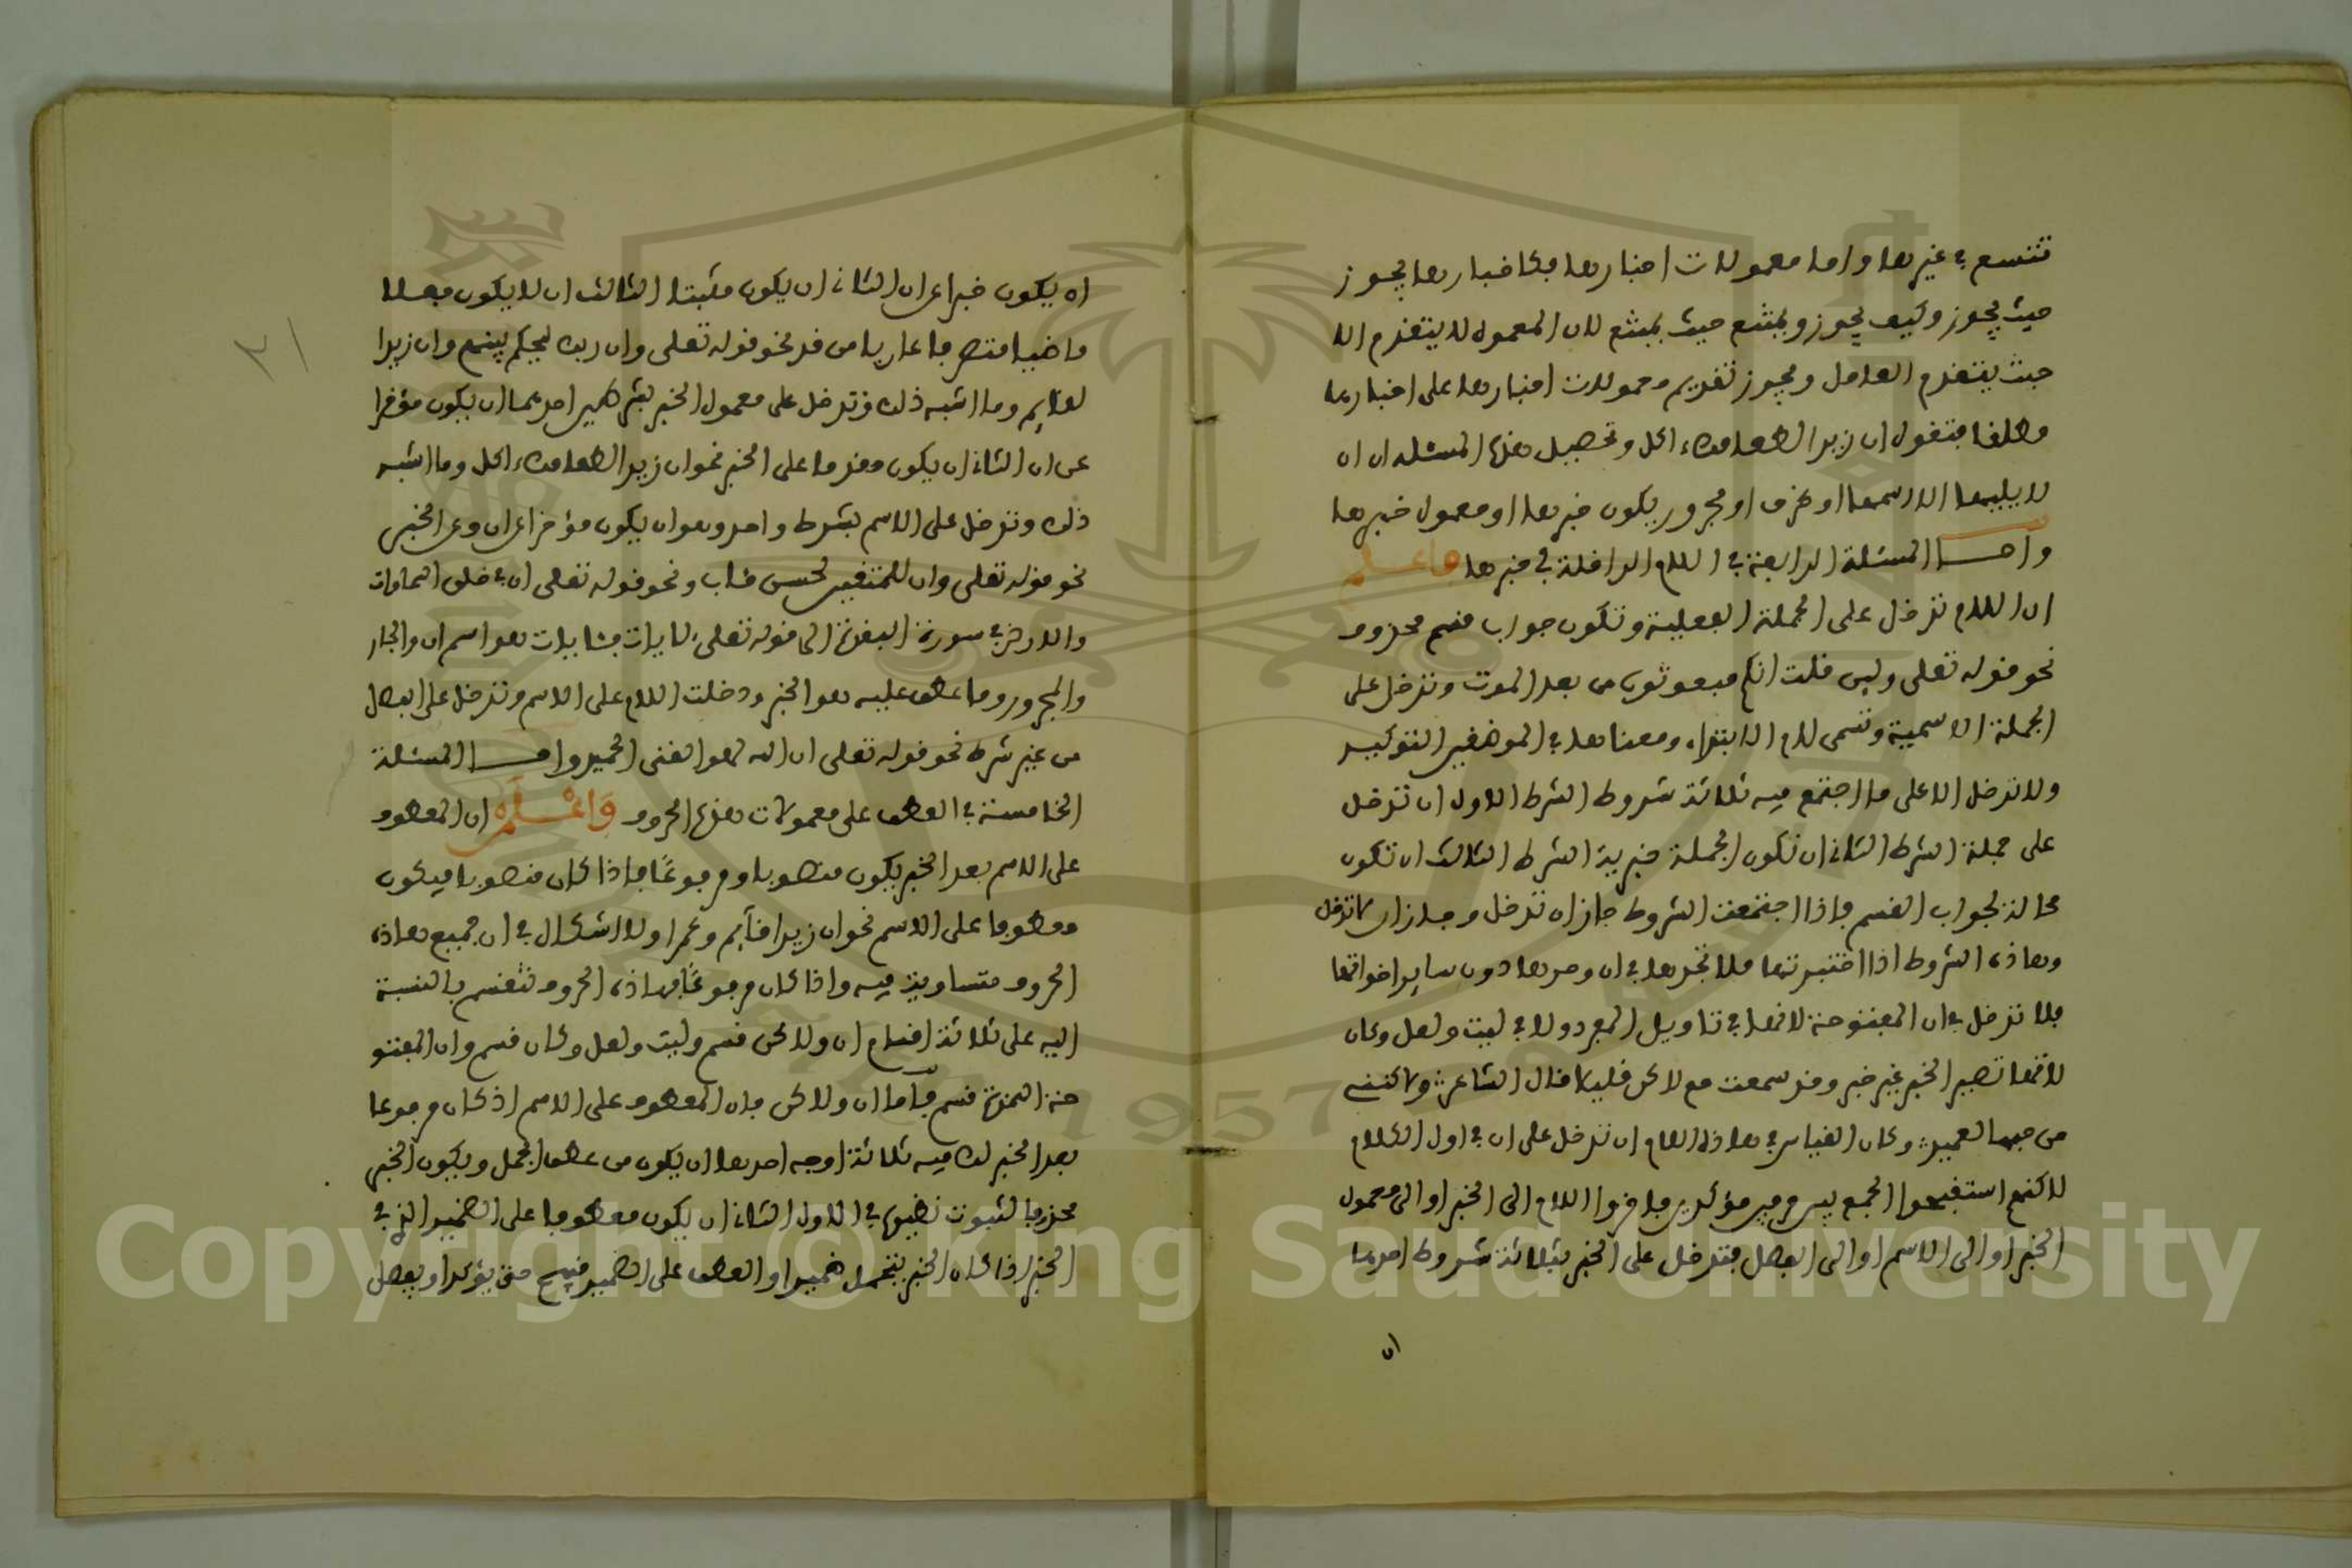 تتسع في غيرها واما معمولات اخبارها فكاخبارها يجوز
حيث يجوز وكيف يجوز ويمتنع حيث يمتنع لان المعمول لا يتقدم الا
حيث يتقدم العامل ويجوز تقديم معمولات اخبارها على اخبارها
مطلقا فتقول ان زيدا لطعامك ءاكل وتحصيل هذه المسئله ان ان
لا يليها الا اسمها او ظرف او مجرور يكون خبرها او معمول خبرها
واما المسئلة الرابعة في اللام الداخلة في خبرها فاعلم
ان اللام تدخل على الجملة الفعلية وتكون جواب قسم محذوف
نحو قوله تعلى ولين قلت انكم مبعوثون من بعد الموت وتدخل على
الجملة الاسمية وتسمى لام الابتداء ومعناها في الموضعين التوكيد
ولا تدخل الا على ما اجتمع فيه ثلاثة شروط الشرط الاول ان تدخل
على جملة الشرط الثاني ان تكون الجملة خبرية الشرط الثالث ان تكون
محالة لجواب القسم فاذا اجتمعت الشروط جاز ان تدخل وجاز ان لا تدخل
وهاذه الشروط اذا اختبرتها فلا تجدها في ان وحدها دون ساير اخواتها
فلا تدخل في ان المفتوحة لانها في تاويل المفرد ولا في ليت ولعل وكان
لانها تصير الخبر غير خبر وقد سمعت مع لاكن قليلا قال الشاعر ولاكنني
من حبها لعميد وكان القياس في هاذه اللام ان تدخل على ان في اول الكلام
لاكنهم استقبحوا الجمع بين حرفين مؤكدين فاخروا اللام الى الخبر او الى معمول
الخبر او الى الاسم او الى الفصل فتدخل على الخبر بثلاثة شروط احدها
ان
ان يكون خبرا عن ان الثاني ان يكون مثبتا الثالث ان لا يكون فعلا
ماضيا متصرفا عاريا من قد نحو قوله تعلى وان ربك ليحكم بينهم وان زيدا
لقايم وما اشبه ذلك وتدخل على معمول الخبر بشرطين احدهما ان يكون مؤخرا
عن ان الثاني ان يكون مقدما على الخبر نحو ان زيدا لطعامك ءاكل وما اشبه
ذلك وتدخل على الاسم بشرط واحد وهو ان يكون مؤخرا عن ان وعن الخبر
نحو قوله تعلى وان للمتقين لحسن مئاب ونحو قوله تعلى ان في خلق السماوات
والارض في سورة البقرة الى قوله تعلى لايات فئايات هو اسم ان والجار
والمجرور وما عطف عليه هو الخبر ودخلت اللام على الاسم وتدخل على الفصل
من غير شرط نحو قوله تعلى ان الله لهو الغني الحميد واما المسئلة
الخامسة في العطف على معمولات هذه الحروف واعلم ان المعطوف
على الاسم بعد الخبر يكون منصوبا ومرفوعا فاذا كان منصوبا فيكون
معطوفا على الاسم نحو ان زيدا قآيم وعمرا ولا اشكال في ان جميع هاذه
الحروف متساوية فيه واذا كان مرفوعا فهاذه الحروف تنقسم بالنسبة
اليه على ثلاثة اقسام ان ولاكن قسم وليت ولعل وكان قسم وان المفتو
حة الهمزة قسم فاما ان ولاكن فان المعطوف على الاسم اذ كان مرفوعا
بعد الخبر لك فيه ثلاثة اوجه احدها ان يكون من عطف الجمل ويكون الخبر
محذوفا لثبوت نظيره في الاول الثاني ان يكون معطوفا على الضمير الذي في
الخبر اذا كان الخبر يتحمل ضميرا والعطف على الضمير قبيح حتى يؤكد او يفصل
٢١
Copyright © King Saud University
1957